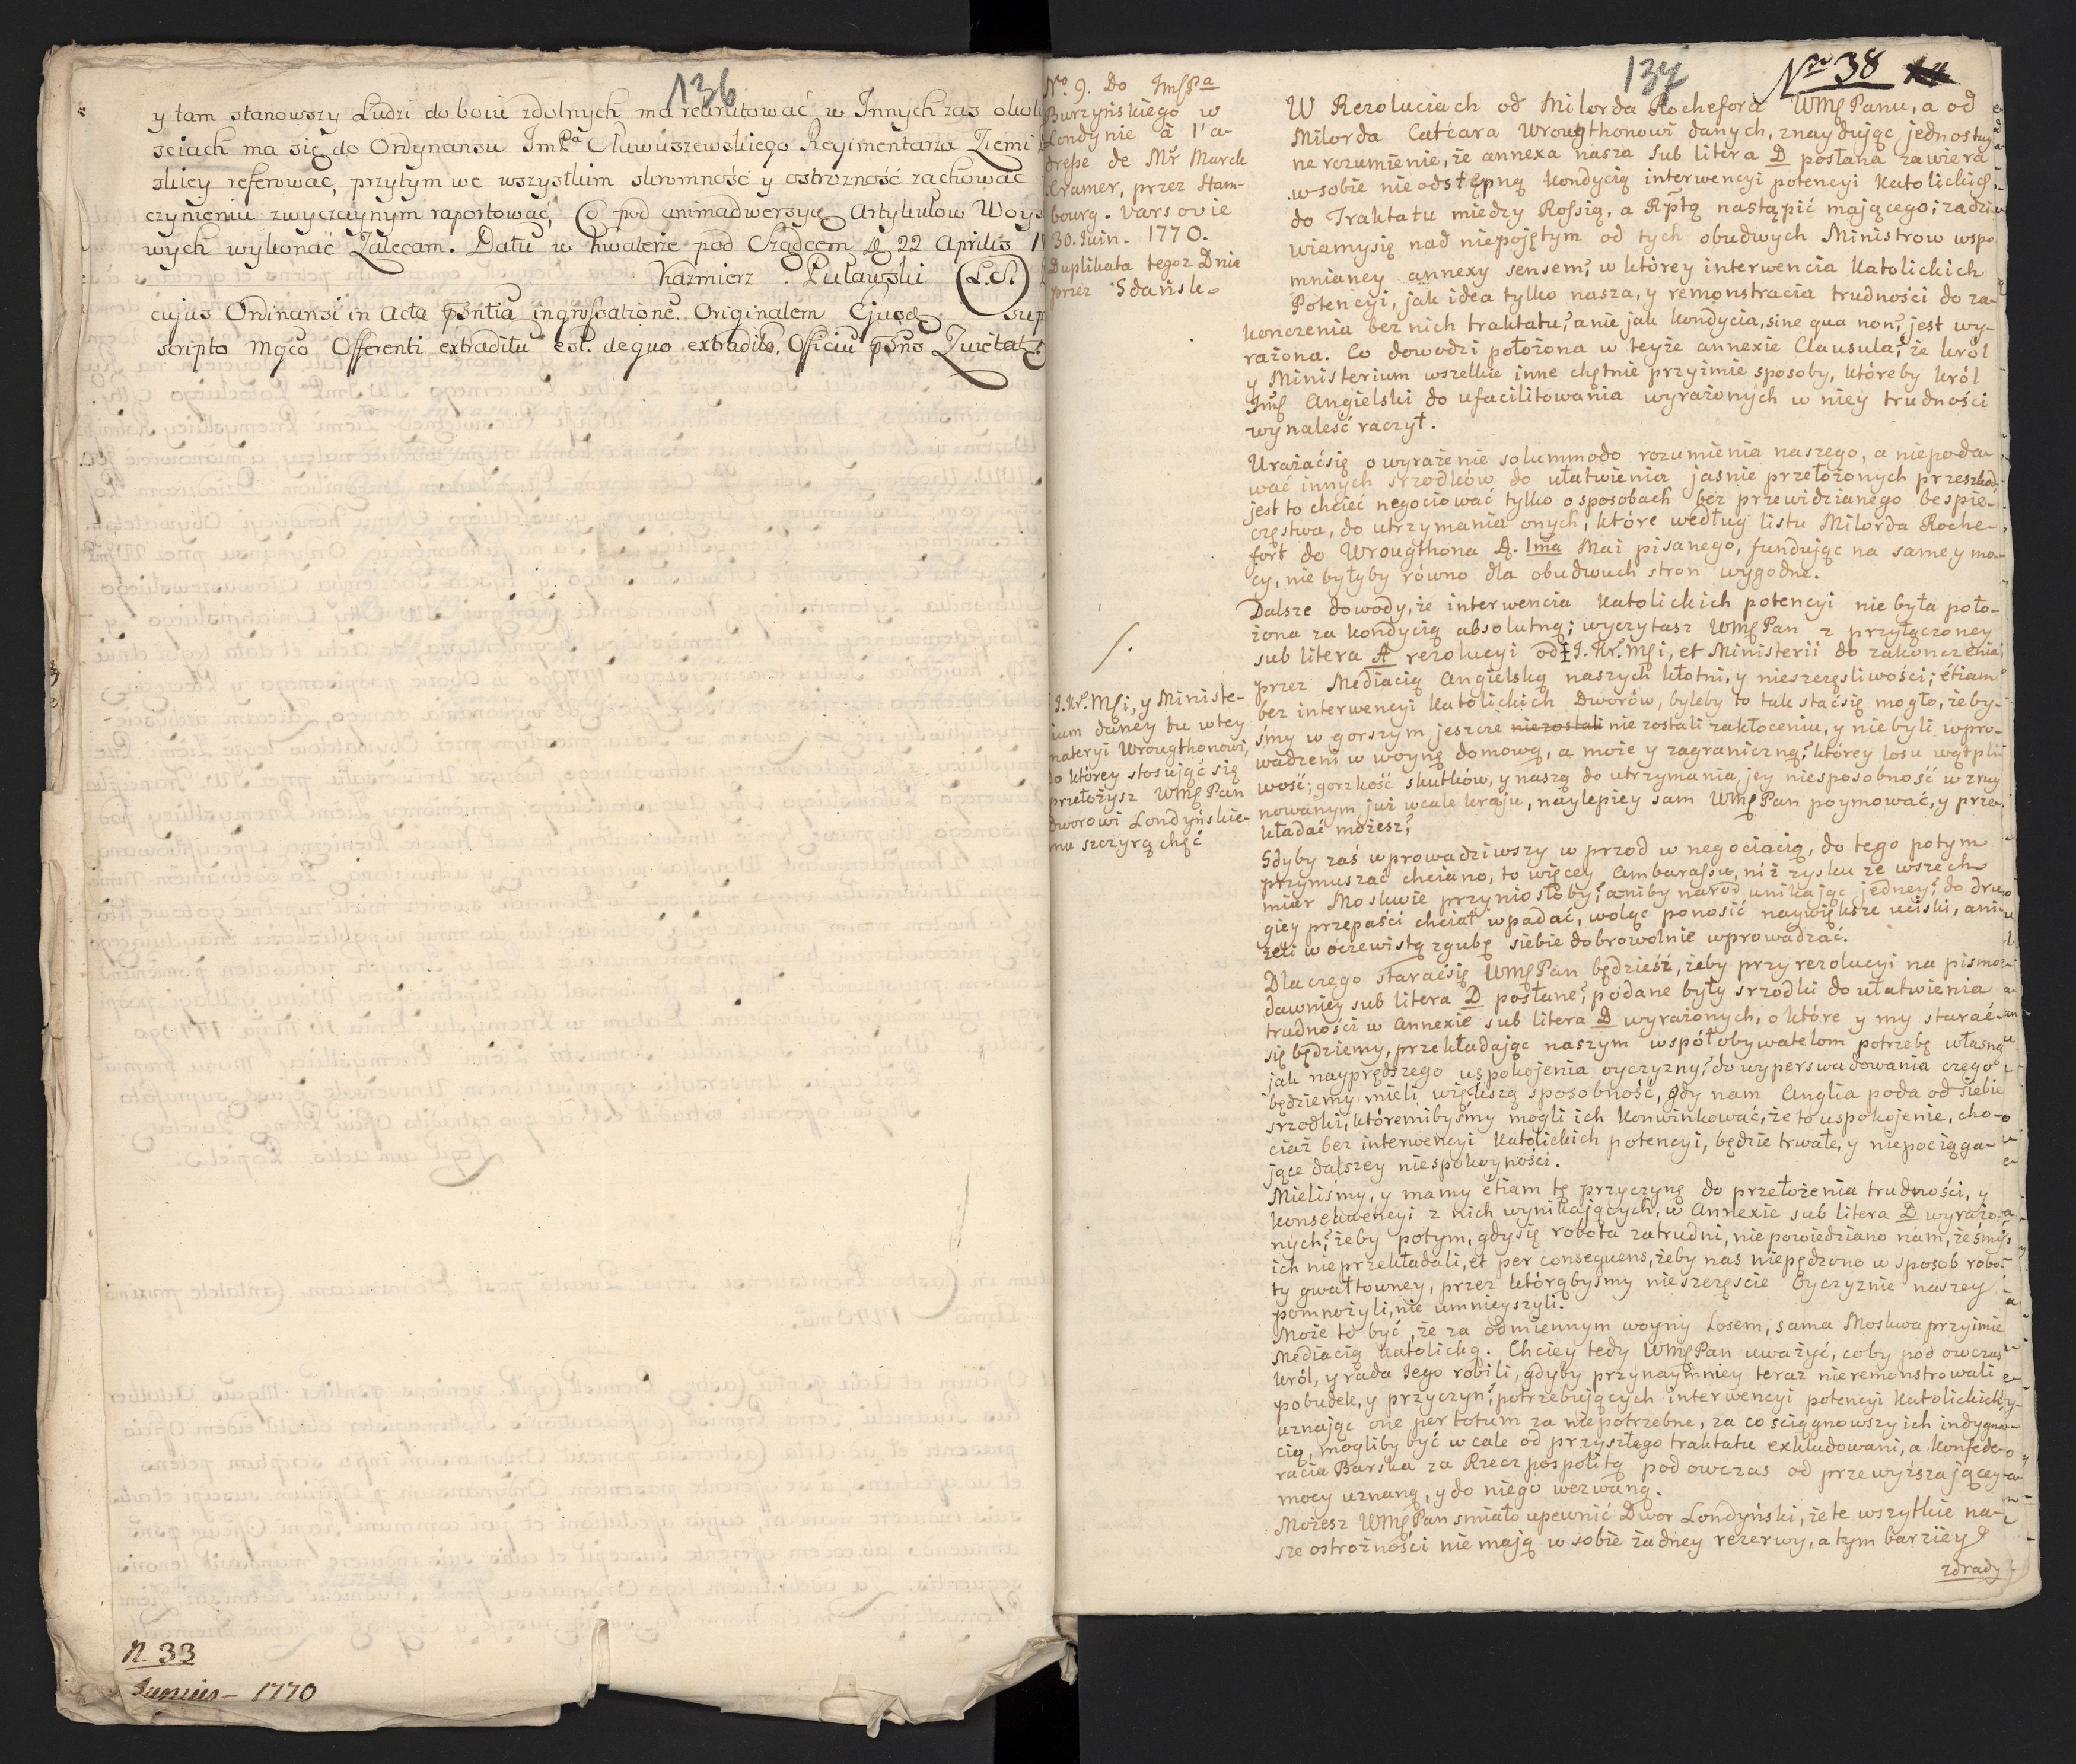 136
y tam stanowszy Ludzi do boiu zdolnych ma rekrutować w Innych zas okoli
sciach ma się do Ordynansu ImPa Cluwuszewskiego Regimentarza Ziemi
skiey referować, przytym we wszystkim skromność y ostrozność zachować
czynieniu zwyczaynym raportować, Co pod animadwersyą Artykułow Woys
wych wykonać Zalecam. Datu w kwaterze pod Cządcem D 22 Aprilis 17
Kazmierz Puławski (L.S.)
cujus Ordinansi in Acta pnsentia ingrossatione. Originalem Ejusd sup
scripto Mgco Offerenti extraditu est. de quo extradito. Officiu pnsens Zwietat
N. 33
Junius - 1770
137
Nro 38
No. 9. Do ImśPa
Burzyńskiego w
Londynie à l'a-
dresse de Mr Marck
Cramer, przez Ham-
bourg. Varsovie
30. Juin. 1770.
Duplikata tegoż Dnia
przez Gdańsk.
W Rezoluciach od Milorda Rochefora WMśPanu, a od
Milorda Catcara Wrougthonowi danych, znayduiąc jednostay-
ne rozumienie, że annexa nasza sub litera D posłana zawiera
w sobie nieodstępną kondycią interwencyi potencyi Katolickich,
do Traktatu między Rossią, a Rptą nastąpić mającego; zadzi-
wiamysię nad niepojętym od tych obudwych Ministrow wspo-
mnianey annexy sensem, w którey interwencia Katolickich
Potencyi, jak idea tylko nasza, y remonstracia trudności do za-
konczenia bez nich traktatu, a nie jak kondycia, sine qua non, jest wy-
rażona. Co dowodzi położona w teyże annexie Clausula, że król
y Ministerium wszelkie inne chętnie przyimie sposoby, któreby król
Jmś Angielski do ufacilitowania wyrażonych w niey trudności
wynaleść raczył.
Urażaćsię o wyrażenie solummodo rozumienia naszego, a niepoda-
wać innych srzodków do ułatwienia jasnie przełożonych przeszkod,
jest to chcieć negociować tylko o sposobach bez przewidzianego bespie-
częstwa, do utrzymania onych, które według listu Milorda Roche-
fort do Wrougthona D. 1ma Mai pisanego, fundując na samey mo-
cy, nie byłyby równo dla obudwuch stron wygodne.
Dalsze dowody, że interwencia Katolickich potencyi nie była poło-
żona za kondycią absolutną; wyczytasz WMśPan z przyłączoney
sub litera A rezolucyi od J. Kr. Mśi, et Ministerii do zakonczenia
przez Mediacią Angielską naszych kłotni, y nieszczęśliwości; etiam
bez interwencyi Katolickich Dworów, byleby to tak staćsię mogło, żeby-
śmy w gorszym jeszcze niezostali nie zostali zakłoceniu, y nie byli wpro-
wadzeni w woynę domową, a może y zagraniczną, którey losu wątpli-
wość, gorzkość skutków, y naszą do utrzymania jey niesposobność w zruy-
nowanym już wcale kraju, naylepiey sam WMśPan poymować, y prze-
kładać możesz.
J. Kr. Mśi, y Ministe-
rium daney tu w tey
materyi Wrougthonowi,
do którey stosując się
przełożysz WMśPan
Dworowi Londyńskie-
mu szczyrą chęć
Gdyby zaś wprowadziwszy w przod w negociacią, do tego potym
przymuszać chciano, to więcey Ambarassu, niż zysku ze wszech
miar Moskwie przyniosłoby, aniby narod unikając jedney, do dru-
giey przepaści chciał wpadać, woląc ponosić naywiększe uciski, ani-
żeli w oczewistą zgubę siebie dobrowolnie wprowadzać.
Dlaczego staraćsię WMśPan będzieśz, żeby przy rezolucyi na pismo
dawniey sub litera D posłane, podane były srzodki do ułatwienia
trudności w Annexie sub litera D wyrażonych, o które y my starać
się będziemy, przekładając naszym współobywatelom potrzebę własną
jak nayprędszego uspokojenia oyczyzny, do wyperswadowania czego
będziemy mieli większą sposobność, gdy nam Anglia poda od siebie
srzodki, któremibyśmy mogli ich konwinkować, że to uspokojenie, cho-
ciaż bez interwencyi Katolickich potencyi, będzie trwałe, y niepociąga-
jące dalszey niespokoyności.
Mieliśmy, y mamy etiam tę przyczynę do przełożenia trudności, y
konsekwencyi z nich wynikających, w Annexie sub litera D wyrażo-
nych, żeby potym, gdysię robota zatrudni, nie powiedziano nam, żeśmy
ich nieprzekładali, et per consequens, żeby nas niepędzono w sposob robo-
ty gwałtowney, przez którąbyśmy nieszczęście Oyczyznie naszey
pomnożyli, nie umnieyszyli.
Może to być, że za odmiennym woyny Losem, sama Moskwa przyimie
Mediacią Katolicką. Chciey tedy WMśPan uważyć, coby pod owczas
król, y rada Jego robili, gdyby przynaymniey teraz nieremonstrowali
pobudek, y przyczyn, potrzebujących interwencyi potencyi Katolickich,
uznając one per totum za niepotrzebne, za co sciągnowszy ich indygna-
cią, mogliby być wcale od przyszłego traktatu exkludowani, a konfede-
racia Barska za Rzecz pospolitą pod owczas od przewyższającey
mocy uznaną, y do niego wezwaną.
Możesz WMśPan smiało upewnić Dwor Londyński, że te wszytkie na-
sze ostrożności nie mają w sobie żadney rezerwy, a tym barziey
zdrady